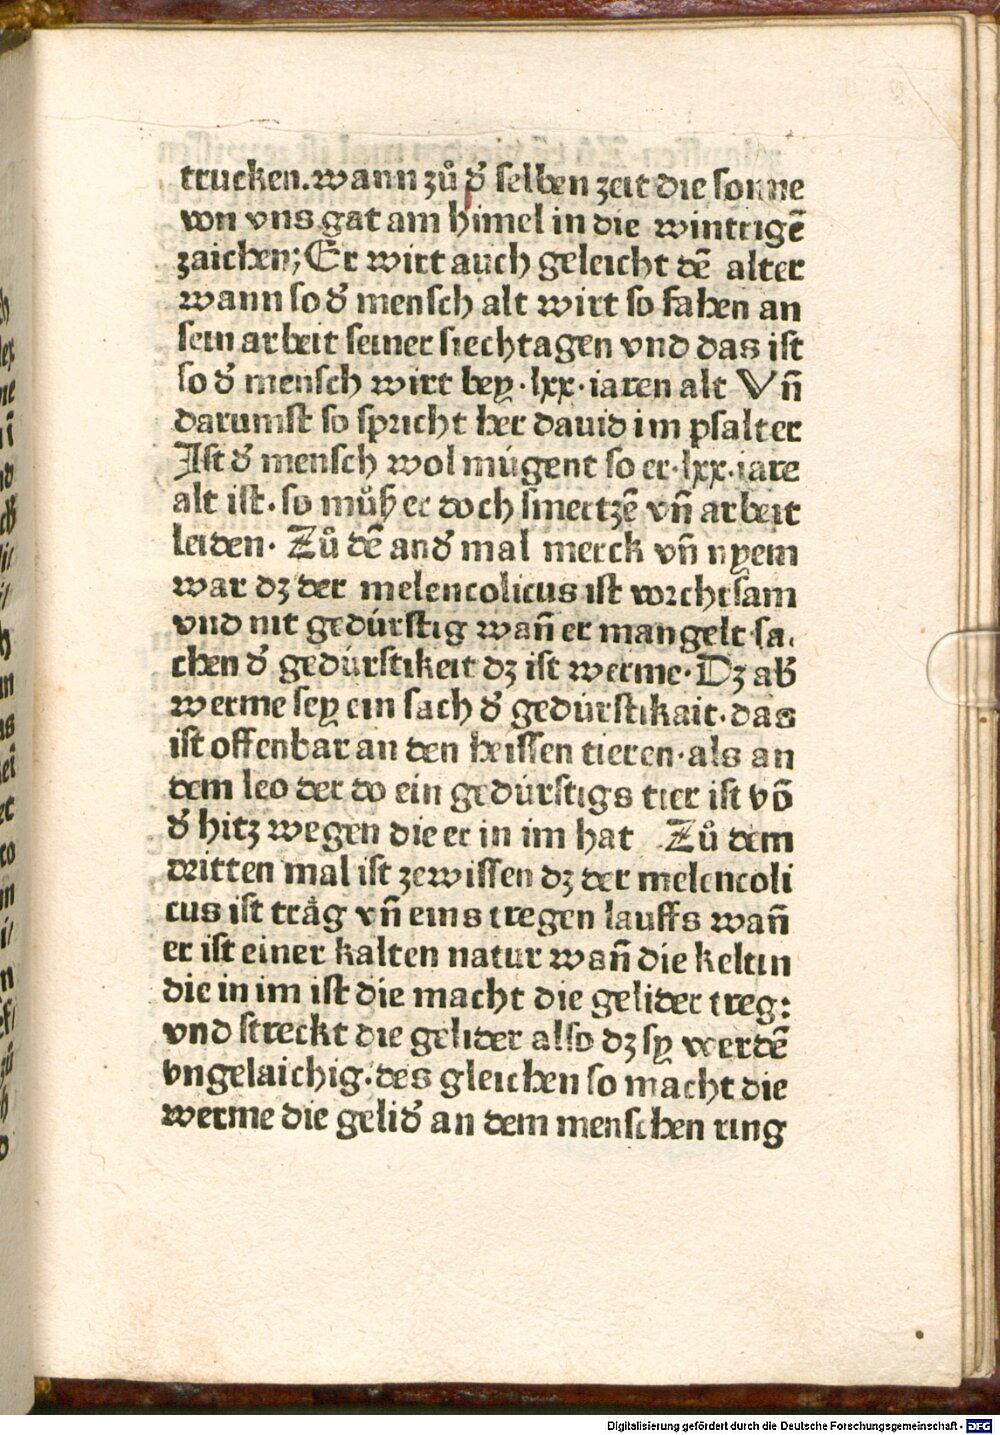 trucken.wann zů đ selben zeit die sonne
von vns gat am himel in die wintrigē
zaichen; Er wirt auch geleicht dē alter
wann so đ mensch alt wirt so fahen an
sein arbeit seiner siechtagen vnd das ist
so đ mensch wirt bey·lxx·iaren alt Vn̄
darumst so spricht her dauid im psalter
Ist đ mensch wol múgent so er·lxx·iare
alt ist. so můß er doch smertzē vn̄ arbeit
leiden· Zů dē and᷑ mal merck vn̄ nyem
war dz der melencolicus ist vorchtsam
vnd nit gedúrstig wan̄ er mangelt sa,
chen đ gedúrstikeit dz ist werme· Dz ab᷑
werme sey ein sach đ gedúrstikait. das
ist offenbar an den heissen tieren·als an
dem leo der do ein gedúrstigs tier ist vō
đ hitz wegen die er in im hat Zů dem
dritten mal ist zewissen dz der melencoli
cus ist trǎg vn̄ eins tregen lauffs wan̄
er ist einer kalten natur wan̄ die keltin
die in im ist die macht die gelider treg:
vnd streckt die gelider also dz sy werdē
vngelaichig.des gleichen so macht die
werme die gelid᷑ an dem menschen ring
Digitalisierung gefördert durch die Deutsche Forschungsgemeinschaft - DFG